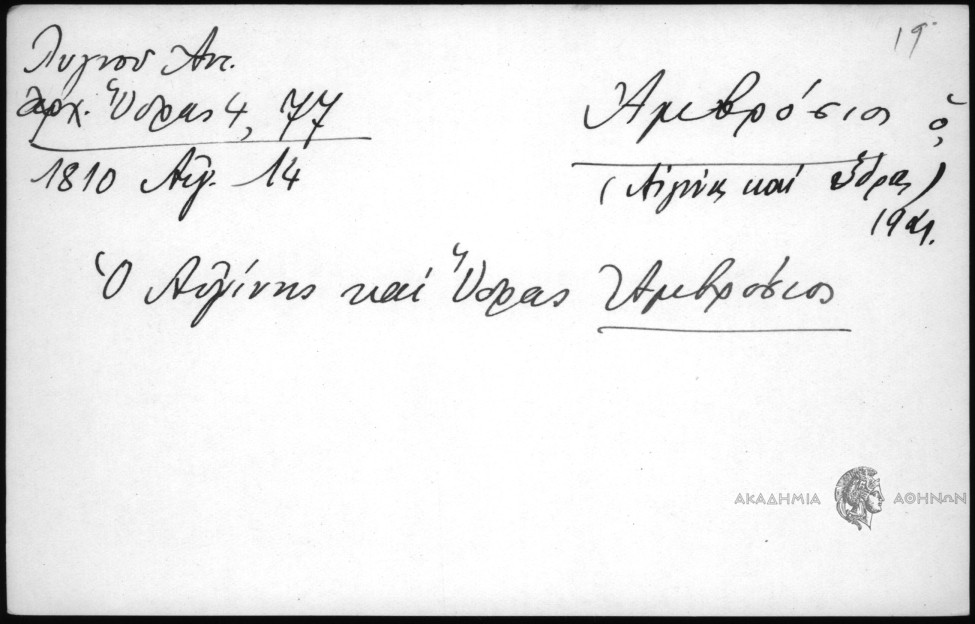 19
Λυγνου Αντ.
Αρχ. Ὕδρας 4, 77
1810 Αὐγ. 14
Ἀμβρόσιος ὁ,
(Αἰγίνης καί Ὕδρας)
Ὁ Αἰγίνης καί Ὕδρας Ἀμβρόσιος
ΑΚΑΔΗΜΙΑ ΑΘΗΝΩΝ